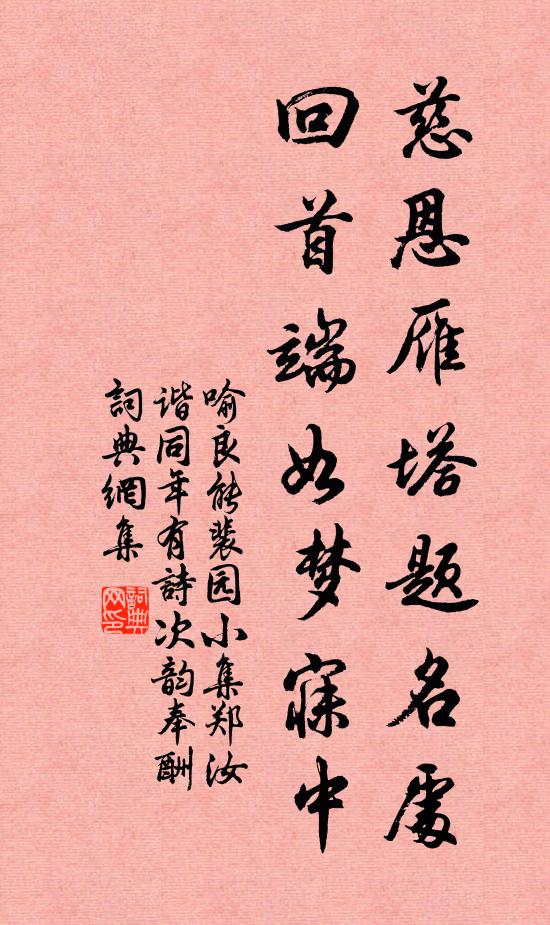 慈恩雁塔题名處
回首端如梦寐中
喻良能裴园小集郑汝
谐同年有詩次韵奉酬
詞典網集
詞典网印